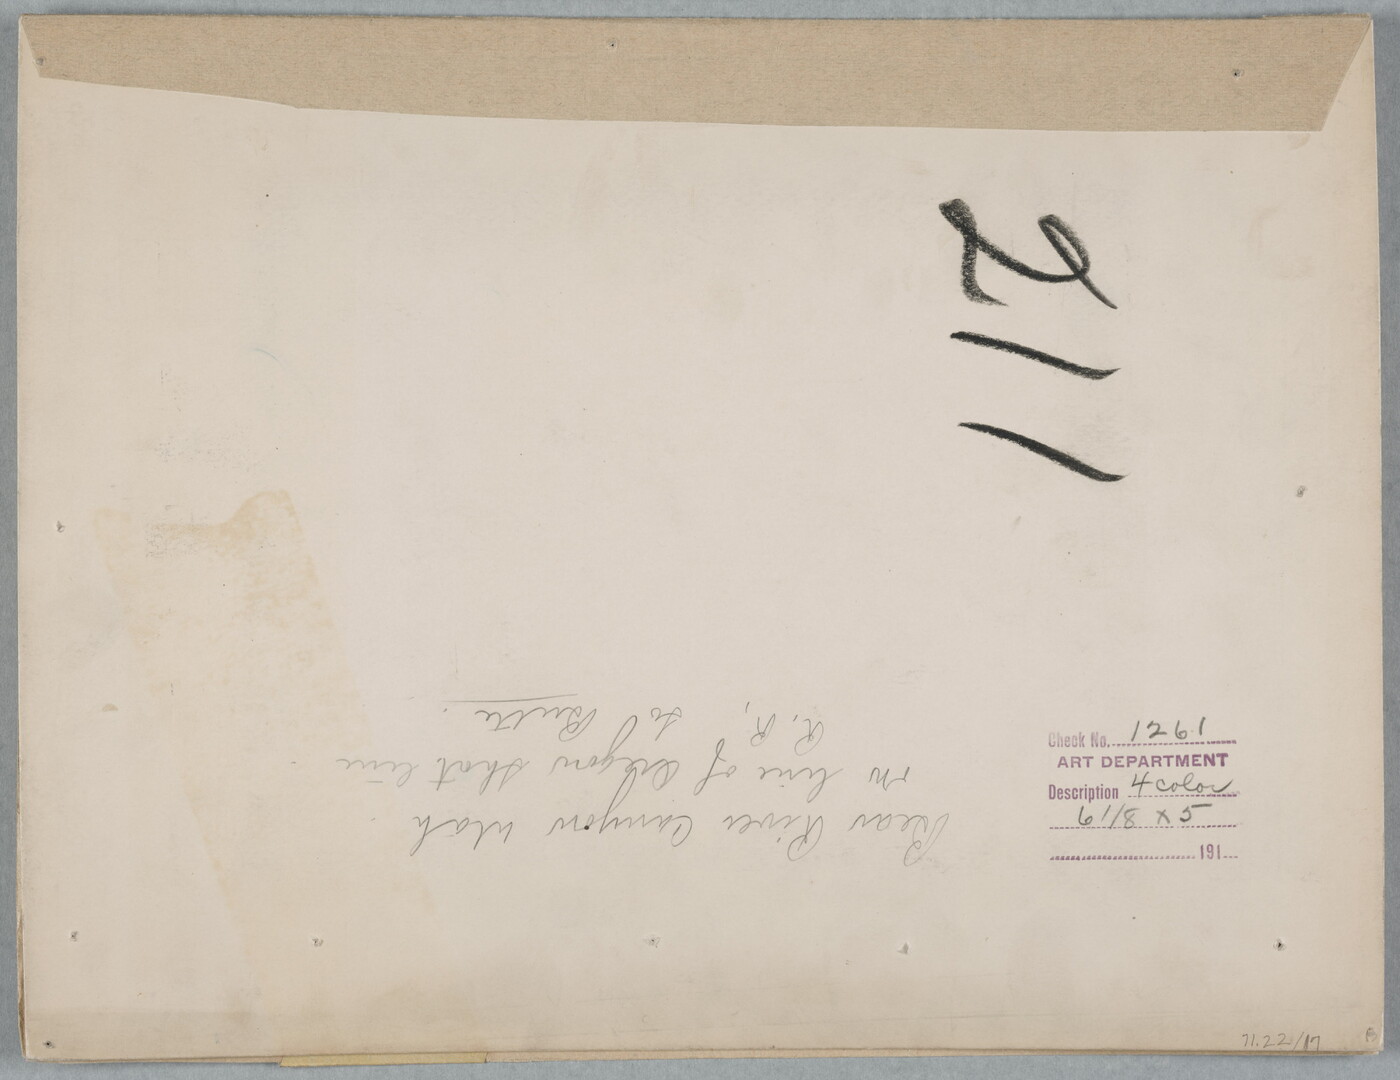 211
Check No. 1261
ART DEPARTMENT
Description 4 color
6 1/8 x 5
191
Bear River Canyon Utah
on line of Oregon Short line
R. R. to Butte.
71.22/17
B